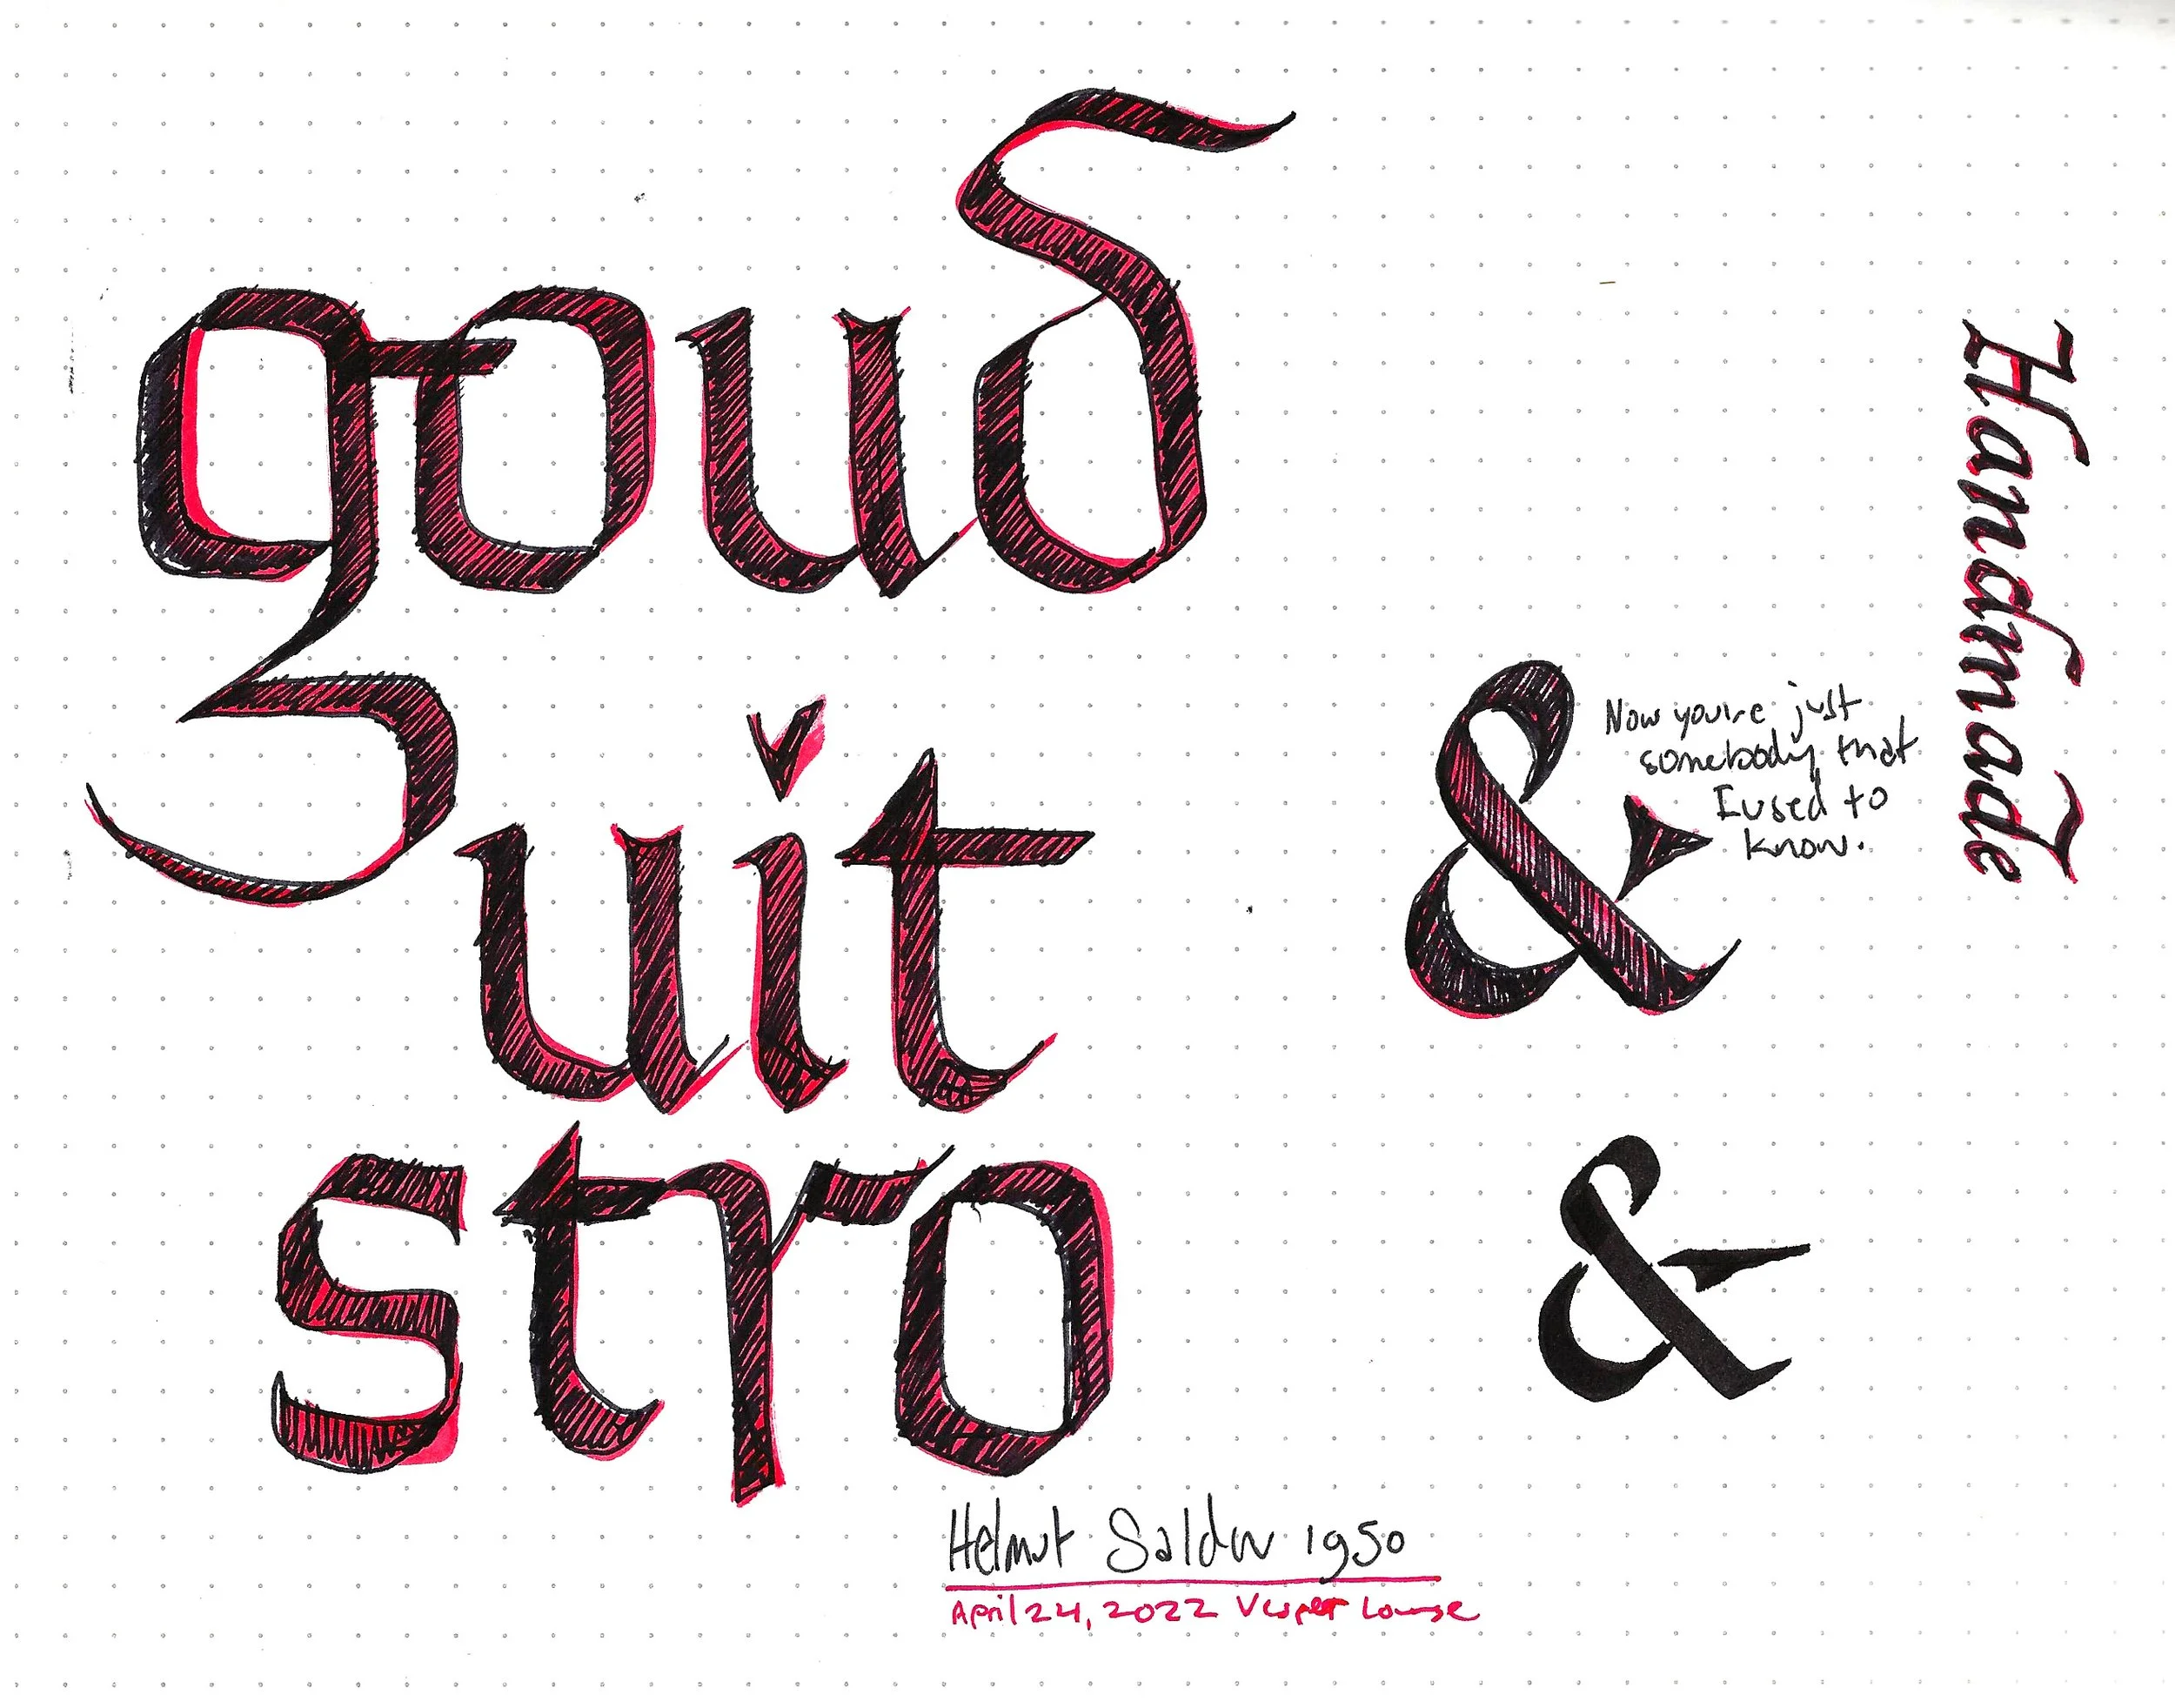 goud
uit
stro
&
Now you're just
somebody that
I used to
know.
Handmade
&
Helmut Salden 1950
April 24, 2022 Vesper Lounge